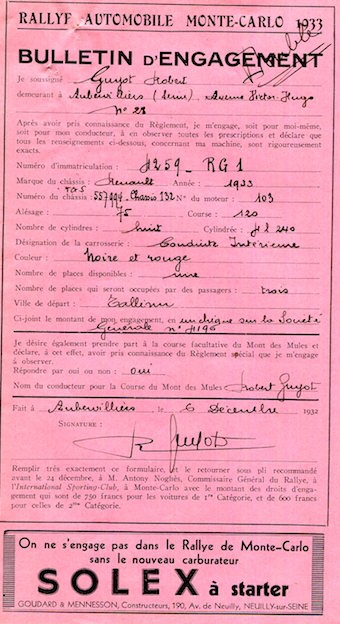 RALLYE AUTOMOBILE MONTE-CARLO 1933
BULLETIN D'ENGAGEMENT
Je soussigné Guyot Robert
demeurant à Aubervilliers (Seine), Avenue Victor-Hugo
N° 28
Après avoir pris connaissance du Règlement, je m'engage, soit pour moi-même,
soit pour mon conducteur, à en observer toutes les prescriptions et déclare que
tous les renseignements ci-dessous, concernant ma machine, sont rigoureusement
exacts.
Numéro d'immatriculation : 4259 - RG1
Marque du châssis : Renault Année : 1933
Numéro du châssis : Chassis 132 N° du moteur : 103
Alésage : 75 Course : 120
Nombre de cylindres : huit Cylindrée : 4l 240
Désignation de la carrosserie : Conduite Intérieure
Couleur : Noire et rouge
Nombre de places disponibles : une
Nombre de places qui seront occupées par des passagers : trois
Ville de départ : Tallinn
Ci-joint le montant de mon engagement, en un chèque sur la Société
Générale n° 4196
Je désire également prendre part à la course facultative du Mont des Mules et
déclare, à cet effet, avoir pris connaissance du Règlement spécial que je m'engage
à observer.
Répondre par oui ou non : oui
Nom du conducteur pour la Course du Mont des Mules Robert Guyot
Fait à Aubervilliers le 6 Décembre 1932
SIGNATURE :
R Guyot
Remplir très exactement ce formulaire, et le retourner sous pli recommandé
avant le 24 décembre, à M. Antony Noghès, Commissaire Général du Rallye, à
l'International Sporting-Club, à Monte-Carlo avec le montant des droits d'engagement
qui sont de 750 francs pour les voitures de 1re Catégorie, et de 600 francs
pour celles de 2me Catégorie.
On ne s'engage pas dans le Rallye de Monte-Carlo
sans le nouveau carburateur
SOLEX à starter
GOUDARD & MENNESSON, Constructeurs, 190, Av. de Neuilly, NEUILLY-sur-SEINE